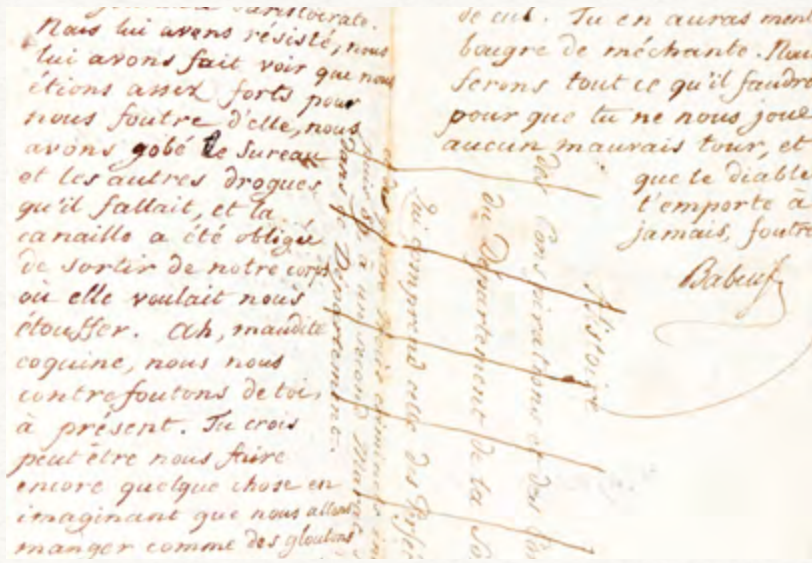 aristocrate.
Nous lui avons résisté, nous
lui avons fait voir que nous
étions assez forts pour
nous foutre d'elle, nous
avons gobé le Sureau
et les autres drogues
qu'il fallait, et la
canaille a été obligée
de sortir de notre corps
où elle voulait nous
étouffer. Ah, maudite
coquine, nous nous
contrefoutons de toi,
à présent. Tu crois
peut être nous faire
encore quelque chose en
imaginant que nous allons
manger comme des gloutons
de cul. Tu en auras men
bougre de méchante. Nous
ferons tout ce qu'il faudra
pour que tu ne nous joue
aucun mauvais tour, et
que le diable
t'emporte à
jamais, foutre
Babeuf
Histoire
des Conspirations et des
du Département de la So
Qui comprend celle des
à un second
dans ce Département.